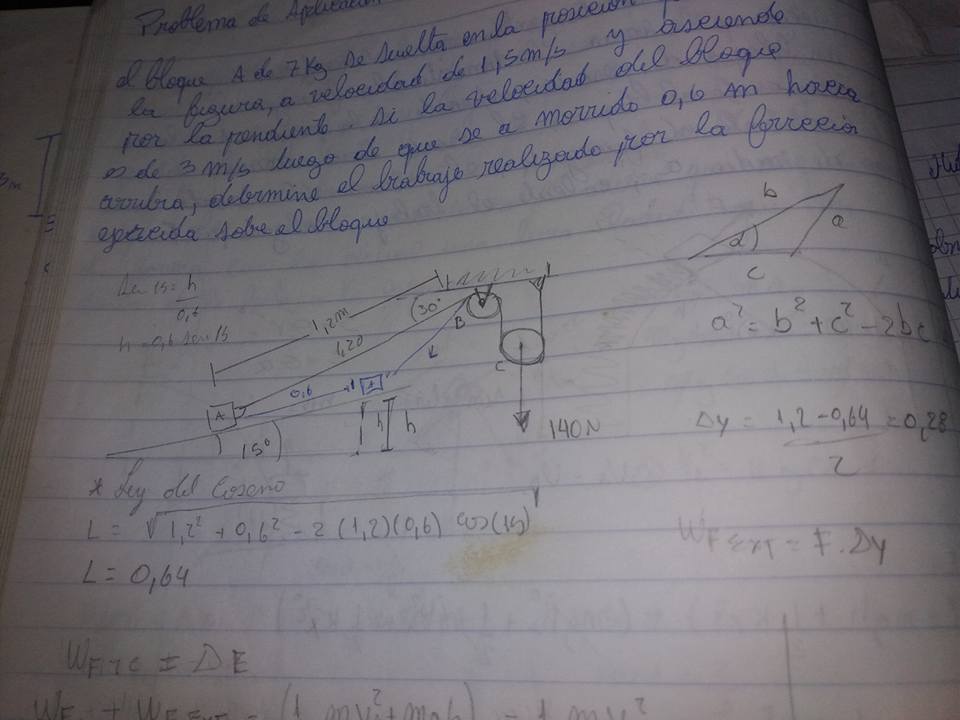 Problema de Aplicación
el bloque A de 7 Kg se suelta en la posición
la figura, a velocidad de 1,5 m/s y asciende
por la pendiente. Si la velocidad del bloque
es de 3 m/s luego de que se a movido 0,6 m hacia
arriba, determine el trabajo realizado por la
ejercida sobre el bloque
h
0,6
h = 0,6 sen 15
1,2m
1,20
30°
B
L
C
0,6
A
A
h
h
15°
140N
b
a
α
c
a² = b² + c² - 2bc
Δy = 1,2 - 0,64 = 0,28
2
* Ley del Coseno
L = √1,2² + 0,6² - 2 (1,2)(0,6) cos(15)
L = 0,64
W F EXT = F. Δy
ΔE